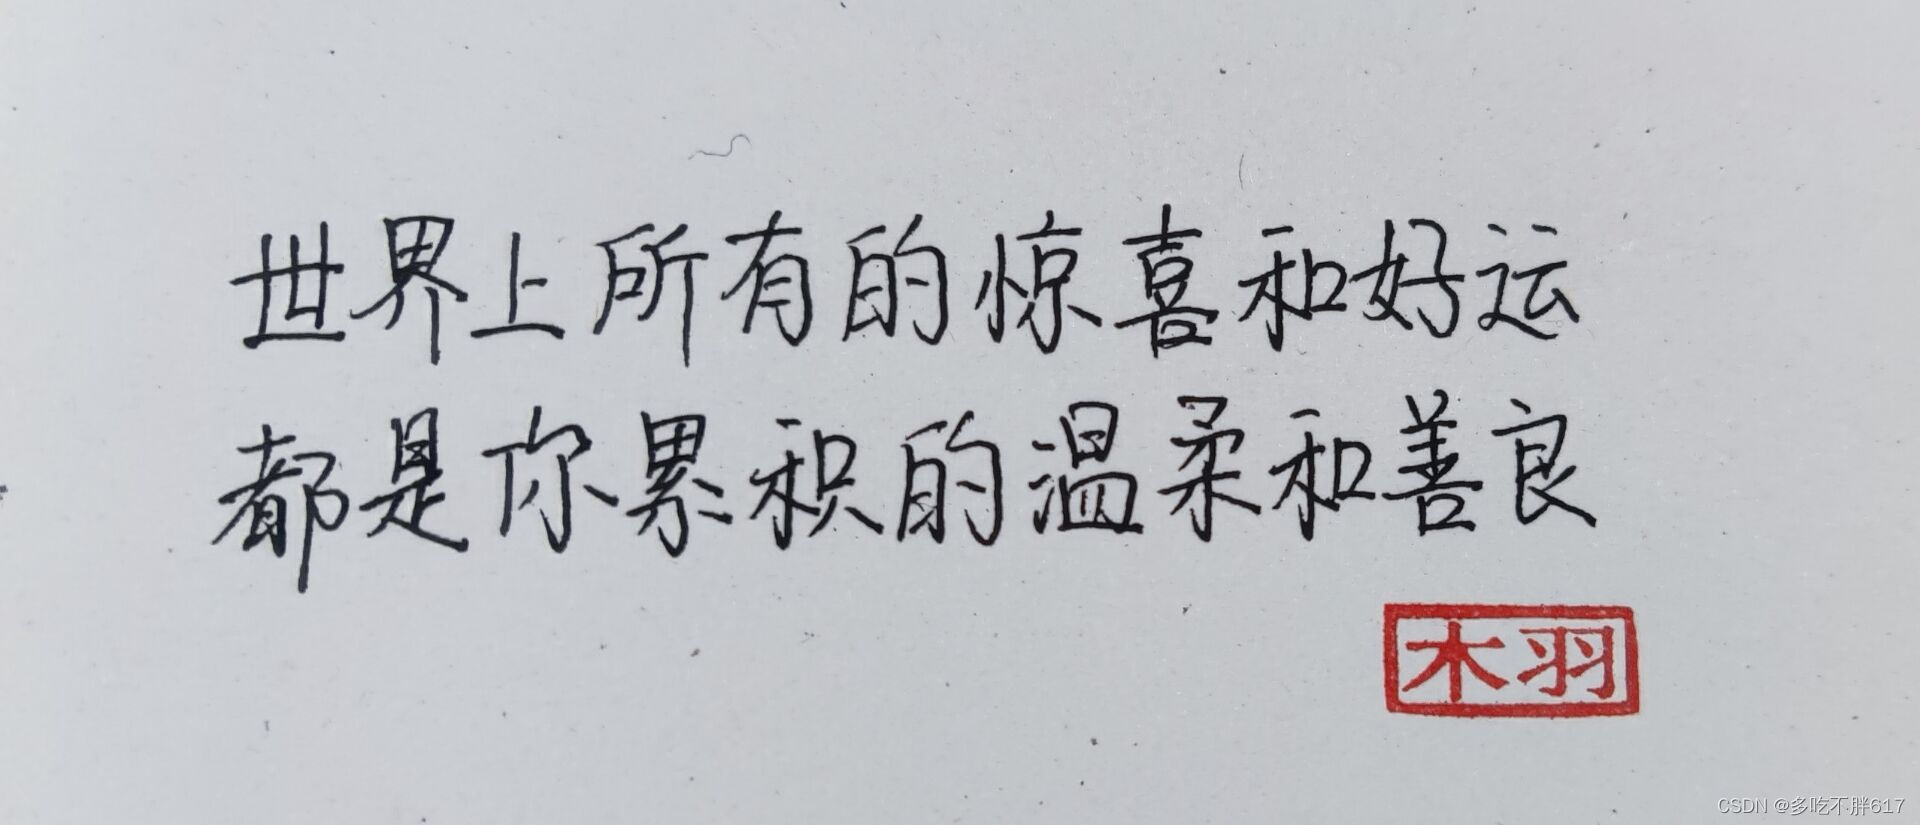 世界上所有的惊喜和好运
都是你累积的温柔和善良
木羽
CSDN @多吃不胖617